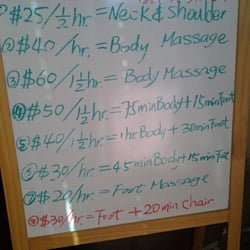 ① $25/½hr. = Neck & shoulder
② $40/hr. = Body Massage
③ $60/1½hr. = Body Massage
④ $50/1½hr. = 75minBody + 15minFoot
⑤ $40/1½hr = 1hr.Body + 30minFoot
$30/hr. = 45minBody + 15minFoot
⑦ $20/hr. = Foot Massage
⑧ $30/hr. = Foot + 20min chair